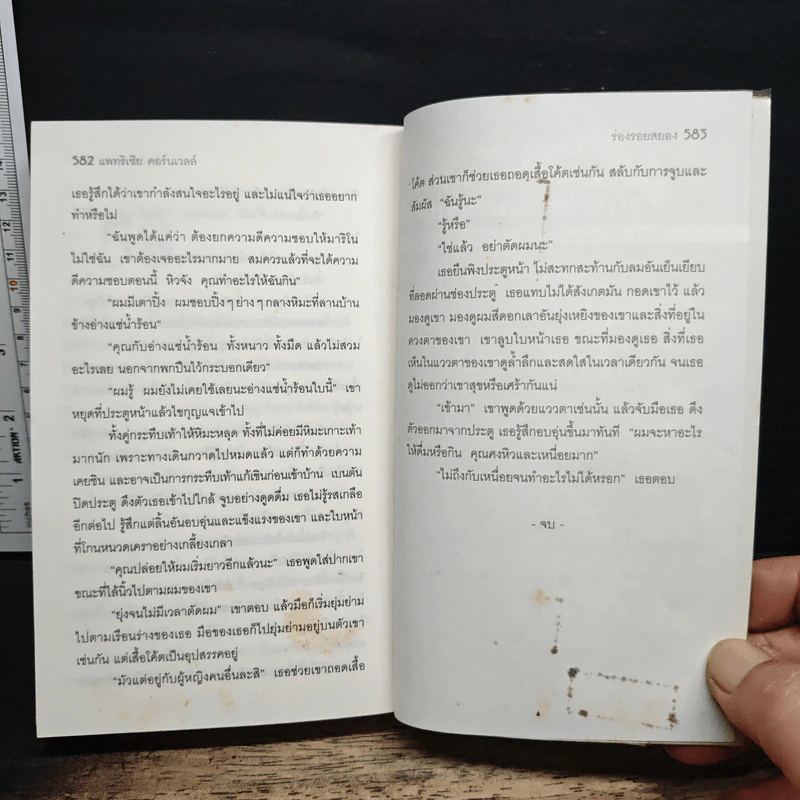 582 แพทริเซีย คอร์นเวลล์
เธอรู้สึกได้ว่าเขากำลังสนใจอะไรอยู่ และไม่แน่ใจว่าเธออยาก
ทำหรือไม่
“ฉันพูดได้แค่ว่า ต้องยกความดีความชอบให้มาริโน
ไม่ใช่ฉัน เขาต้องเจออะไรมากมาย สมควรแล้วที่จะได้ความ
ดีความชอบตอนนี้ หิวจัง คุณทำอะไรให้ฉันกิน”
“ผมมีเตาปิ้ง ผมชอบปิ้งๆ ย่างๆ กลางหิมะที่ลานบ้าน
ข้างอ่างแช่น้ำร้อน”
“คุณกับอ่างแช่น้ำร้อน ทั้งหนาว ทั้งมืด แล้วไม่สวม
อะไรเลย นอกจากพกปืนไว้กระบอกเดียว”
“ผมรู้ ผมยังไม่เคยใช้เลยนะอ่างแช่น้ำร้อนใบนี้” เขา
หยุดที่ประตูหน้าแล้วไขกุญแจเข้าไป
ทั้งคู่กระทืบเท้าให้หิมะหลุด ทั้งที่ไม่ค่อยมีหิมะเกาะเท้า
มากนัก เพราะทางเดินกวาดไปหมดแล้ว แต่ก็ทำด้วยความ
เคยชิน และอาจเป็นการกระทืบเท้าแก้เขินก่อนเข้าบ้าน เบนตัน
ปิดประตู ดึงตัวเธอเข้าไปใกล้ จูบอย่างดูดดื่ม เธอไม่รู้รสเกลือ
อีกต่อไป รู้สึกแต่ลิ้นอันอบอุ่นและแข็งแรงของเขา และใบหน้า
ที่โกนหนวดเคราอย่างเกลี้ยงเกลา
“คุณปล่อยให้ผมเริ่มยาวอีกแล้วนะ” เธอพูดใส่ปากเขา
ขณะที่ไล้นิ้วไปตามผมของเขา
“ยุ่งจนไม่มีเวลาตัดผม” เขาตอบ แล้วมือก็เริ่มยุ่มย่าม
ไปตามเรือนร่างของเธอ มือของเธอก็ไปยุ่มย่ามอยู่บนตัวเขา
เช่นกัน แต่เสื้อโค้ตเป็นอุปสรรคอยู่
“มัวแต่อยู่กับผู้หญิงคนอื่นละสิ” เธอช่วยเขาถอดเสื้อ
ร่องรอยสยอง 583
โค้ต ส่วนเขาก็ช่วยเธอถอดเสื้อโค้ตเช่นกัน สลับกับการจูบและ
สัมผัส “ฉันรู้นะ”
“รู้หรือ”
“ใช่แล้ว อย่าตัดผมนะ”
เธอยืนพิงประตูหน้า ไม่สะทกสะท้านกับลมอันเย็นเยียบ
ที่ลอดผ่านช่องประตู เธอแทบไม่ได้สังเกตมัน กอดเขาไว้ แล้ว
มองดูเขา มองดูผมสีดอกเลาอันยุ่งเหยิงของเขาและสิ่งที่อยู่ใน
ดวงตาของเขา เขาลูบใบหน้าเธอ ขณะที่มองดูเธอ สิ่งที่เธอ
เห็นในแววตาของเขาดูล้ำลึกและสดใสในเวลาเดียวกัน จนเธอ
ดูไม่ออกว่าเขาสุขหรือเศร้ากันแน่
“เข้ามา” เขาพูดด้วยแววตาเช่นนั้น แล้วจับมือเธอ ดึง
ตัวออกมาจากประตู เธอรู้สึกอบอุ่นขึ้นมาทันที “ผมจะหาอะไร
ให้ดื่มหรือกิน คุณคงหิวและเหนื่อยมาก”
“ไม่ถึงกับเหนื่อยจนทำอะไรไม่ได้หรอก” เธอตอบ
- จบ -